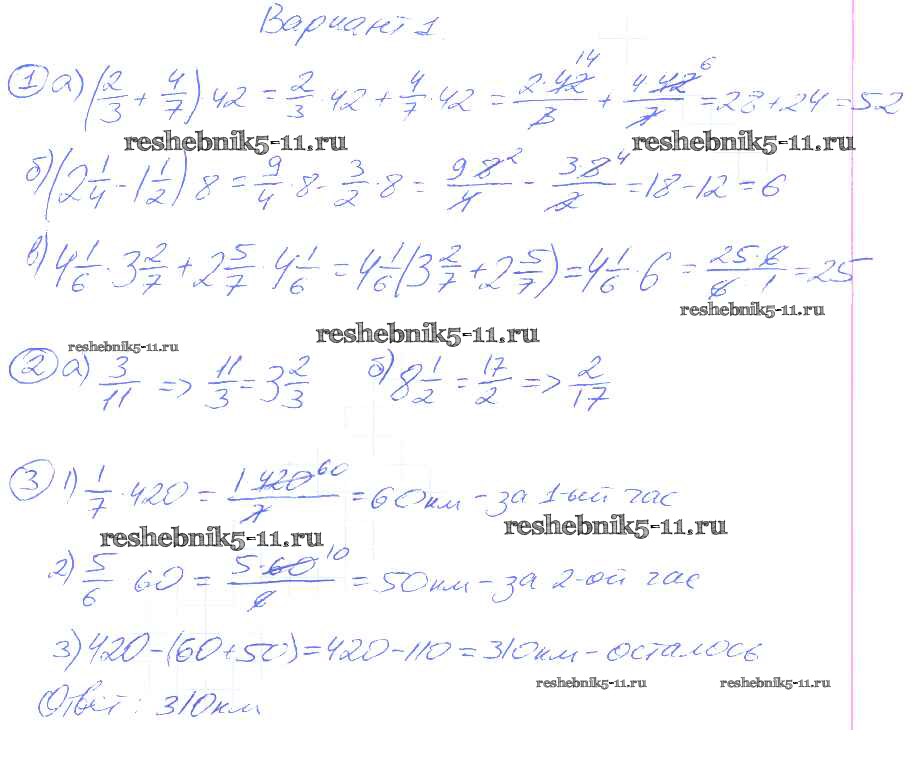 Вариант 1
① а) (2/3 + 4/7) 42 = 2/3 · 42 + 4/7 · 42 = 2·42 14/3 + 4 42 6/7 = 28 + 24 = 52
reshebnik5-11.ru reshebnik5-11.ru
б) (2 1/4 - 1 1/2) 8 = 9/4 · 8 - 3/2 · 8 = 9 8 2/4 - 3·8 4/2 = 18 - 12 = 6
в) 4 1/6 · 3 2/7 + 2 5/7 · 4 1/6 = 4 1/6 (3 2/7 + 2 5/7) = 4 1/6 · 6 = 25·6/6·1 = 25
reshebnik5-11.ru
reshebnik5-11.ru
reshebnik5-11.ru
② а) 3/11 => 11/3 = 3 2/3 б) 8 1/2 = 17/2 => 2/17
③ 1) 1/7 · 420 = 1 420 60/7 = 60 км - за 1-ый час
reshebnik5-11.ru reshebnik5-11.ru
2) 5/6 60 = 5·60 10/6 = 50 км - за 2-ой час
3) 420 - (60 + 50) = 420 - 110 = 310 км - осталось
reshebnik5-11.ru reshebnik5-11.ru
Ответ: 310 км